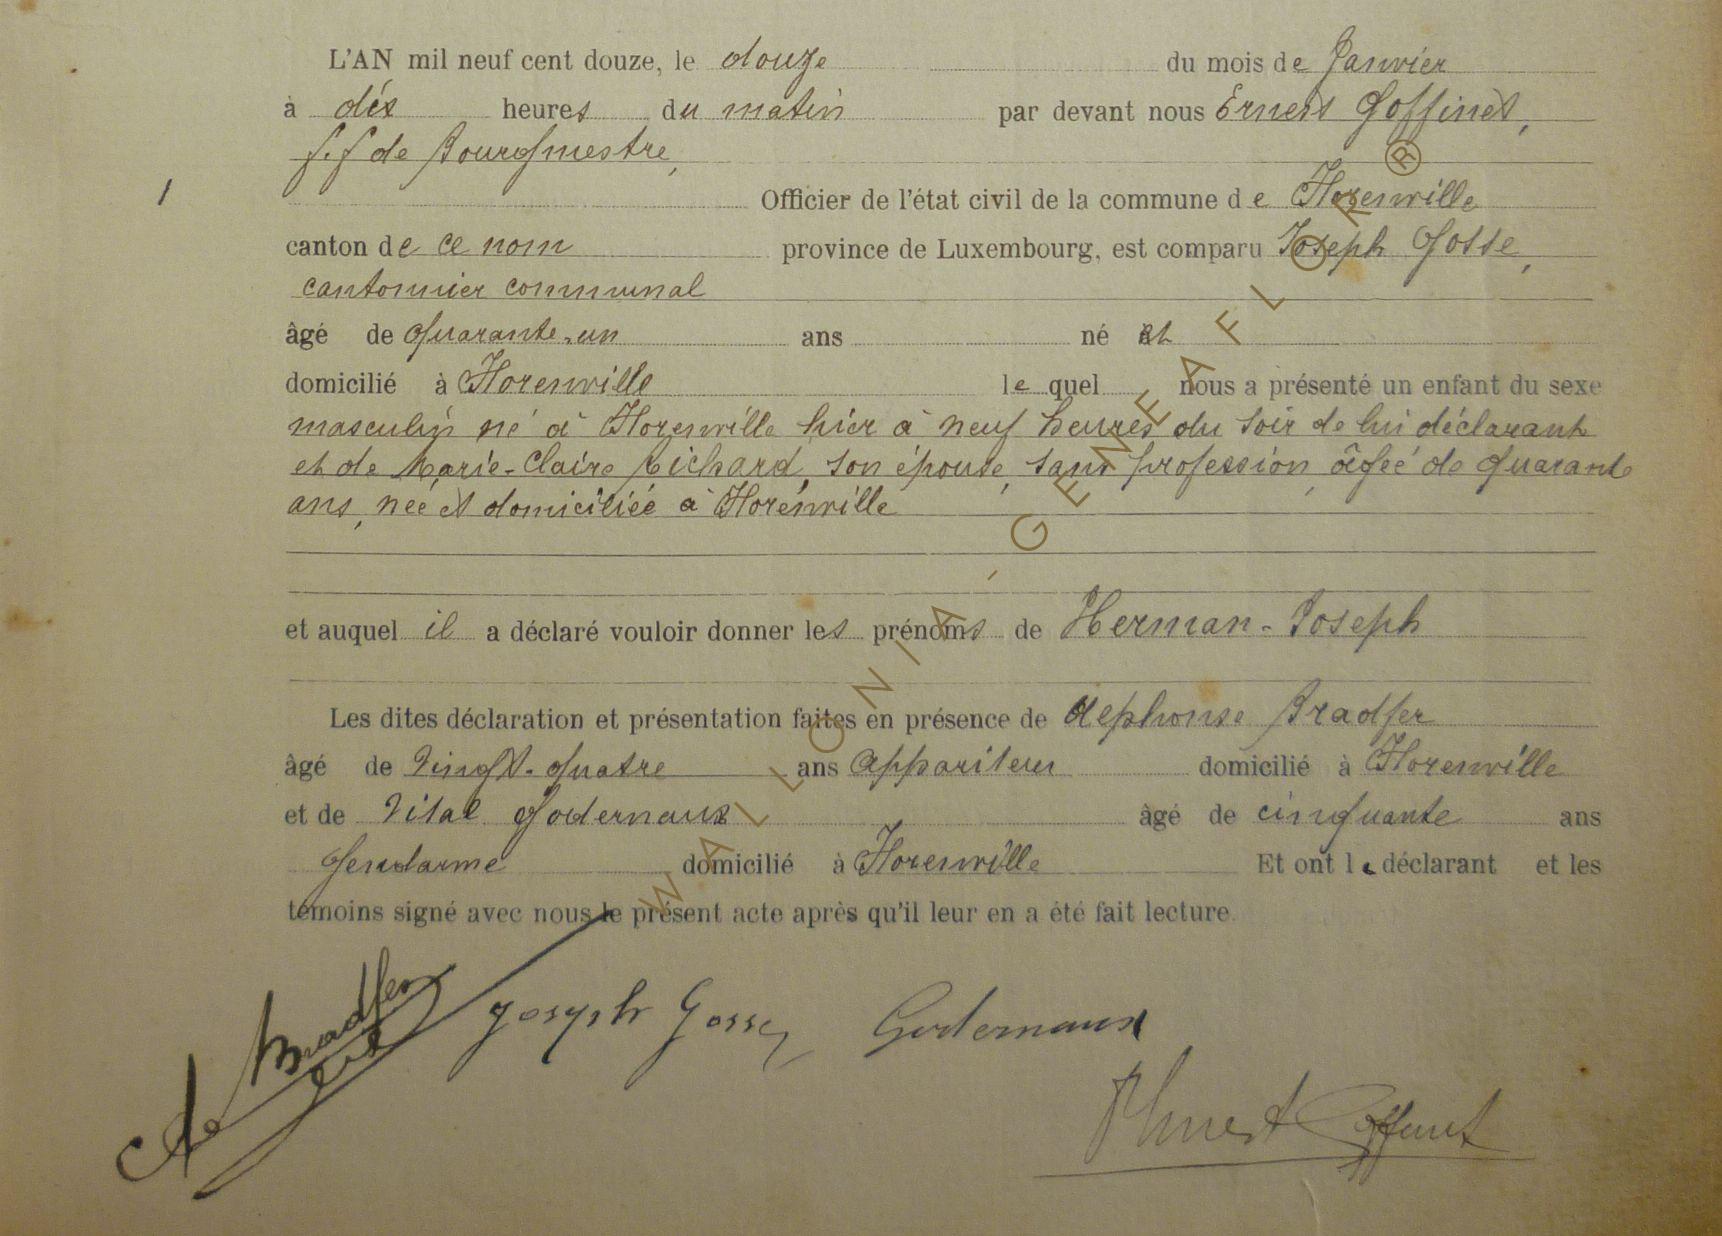 L'AN mil neuf cent douze, le douze du mois de Janvier
à dix heures du matin par devant nous Ernest Goffinet,
f.f de Bourgmestre,
1 Officier de l'état civil de la commune de Florenville
canton de ce nom province de Luxembourg, est comparu Joseph Gosse,
cantonnier communal
âgé de quarante-un ans né et
domicilié à Florenville lequel nous a présenté un enfant du sexe
masculin né à Florenville hier à neuf heures du soir de lui déclarant
et de Marie-Claire Richard, son épouse, sans profession, âgée de quarante
ans, née et domiciliée à Florenville
et auquel il a déclaré vouloir donner les prénoms de Herman-Joseph
Les dites déclaration et présentation faites en présence de Alphonse Bradfer
âgé de vingt-quatre ans appariteur domicilié à Florenville
et de Vital Godernaux âgé de cinquante ans
gendarme domicilié à Florenville Et ont le déclarant et les
témoins signé avec nous le présent acte après qu'il leur en a été fait lecture.
Bradfer Joseph Gosse Godernaux
Ernest Goffinet
WALLONIA - GENEAFLOR ®